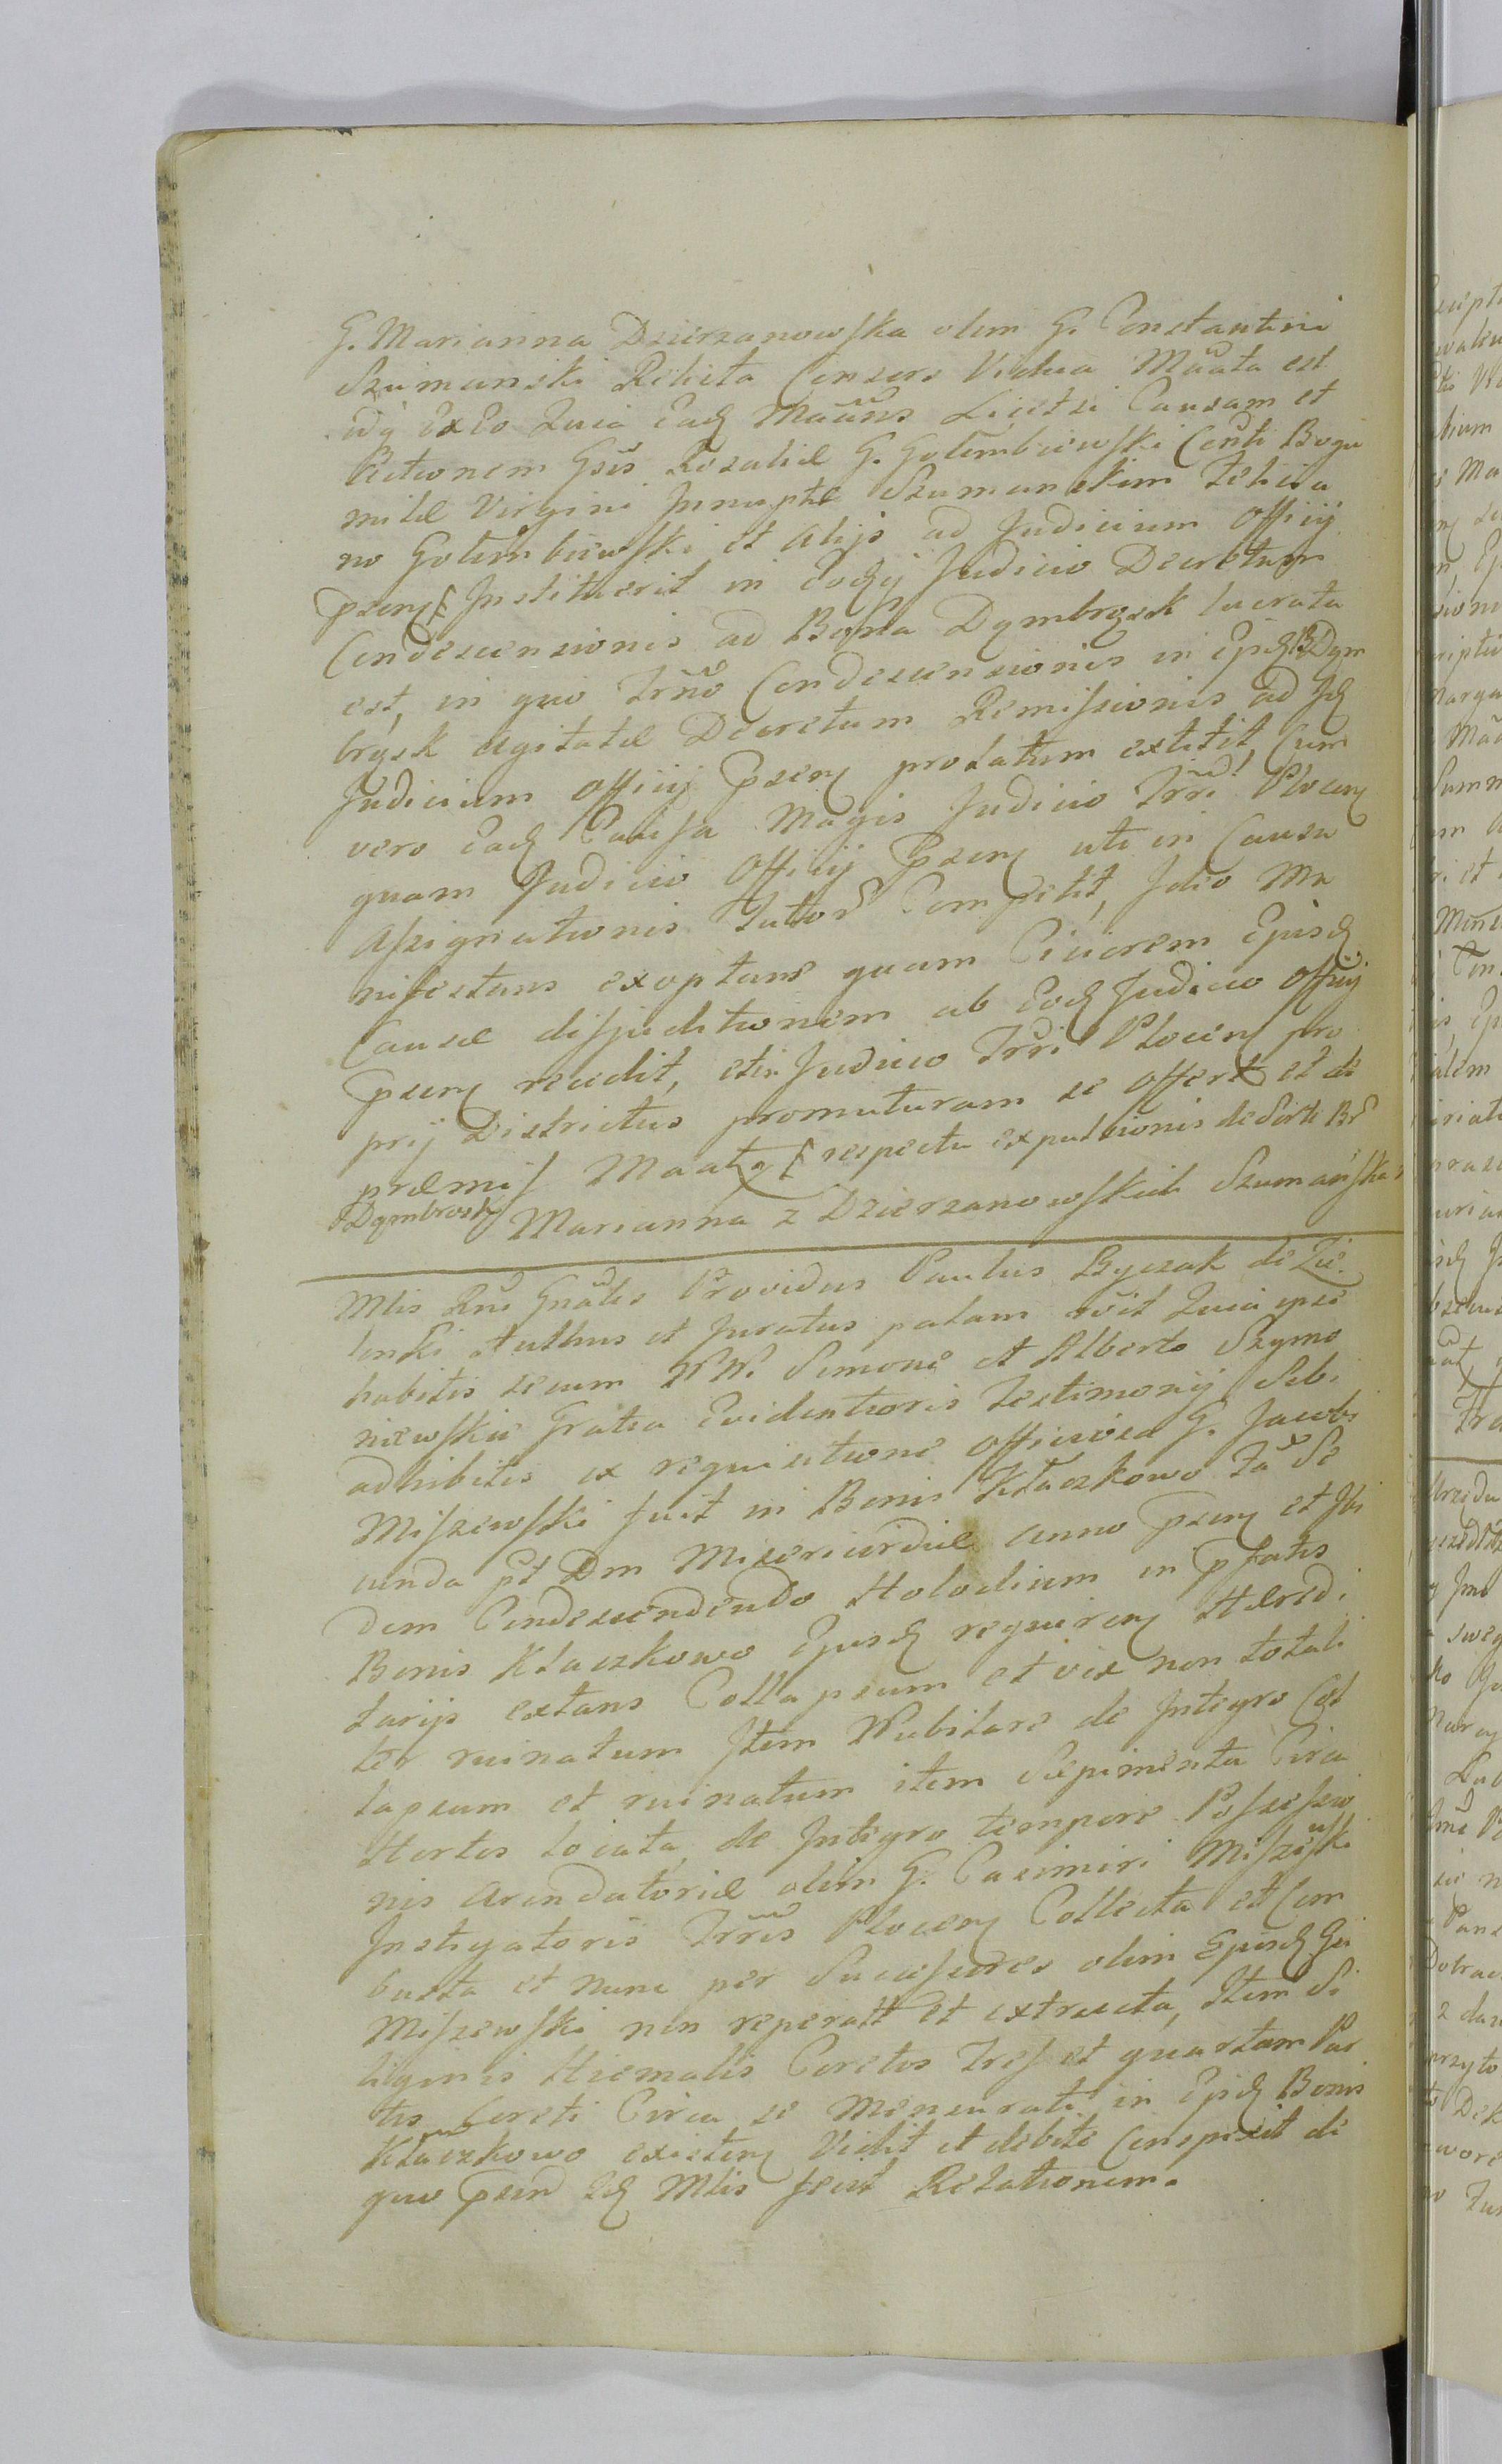 G. Marianna Dzierzanowska olim G. Constantini
Szumanski Relicta Consors Vidua Mãata est
idq̃ Ex Eo Quia Eadq̃ Maãns Licetsi Causam et
Actionem Gsis Rozaliæ G. Gołembiewski Conti Bogu
miłæ Virgini Innuptæ Szumanskim Felicia
no Gołembiewski et alijs ad Judicium Officij
pseng Instituerit in Eodq̃ Judicio Decretum
Condescensionis ad Bona Dąmbrqsk lucrata
est, in quo Trñno Condescensionis in Epidq̃ B Dąm
brqsk agitatæ Decretum Remissionis ad Idq̃
Judicium Officij Pseng prolatum extitit, Cum
vero Eadq̃ Causa Magis Judicio Trri Plocenq̃
quam Judicio Officij Pseng uti in Causa
Assignationis Tutor Competit, Ideo Ma
nifestans exoptans quam Ciliorem Epusdq̃
Causæ disjudicationem ab Eodq̃ Judicio Officij
pseng recedit, et in Judicio Trri Plocenq̃ pro
prij Districtus promuturam se offert et de
præmis Maatq̃ respectu expulsionis de Sorte Br
Dąmbrosk Marianna z Dzierzanowskich Szumańska
Mlis Rñi Gnãlis Providus Paulus Byczak de Zie
lonki Authus et Juratus palam rõit Quia ipse
habitis secum NN. Simone et Alberto Szymo
niewskie Gratia Evidentioris Testimonij Sibi
adhibitis ex requisitione officiosa G. Jacobi
Miszewski fuit in Bonis Kłaczkowo Fã Se
cunda pt Dm Misericordiæ anno pseng et Ibi
dem Condescendendo Holodium in pfatis
Bonis Kłaczkowo Epusdq̃ requireng Hæredi
tarijs extans Collapsum et vix non totali
ter ruinatum Item Nubilare de Integro Col
lapsum et ruinatum item Sepimenta Circa
Hortos locata, de Integro tempore Possessio
nis Arendatoriæ olim G. Casimiri Miszewski
Instigatoris Trris Plocenq̃ Collecta et Com
busta et nunc per Successores olim Epusdq̃ Gsi
Miszewski non reperatt et extructa, Item Si
liginis Hiemalis Coretos Tres et quartam Par
tis Coreti Circa se Mensurati in Epidq̃ Bonis
Kłaczkowo existenq̃ Vidit et debite Conspexit de
quo psend Idq̃ Mlis fecit Relationem.